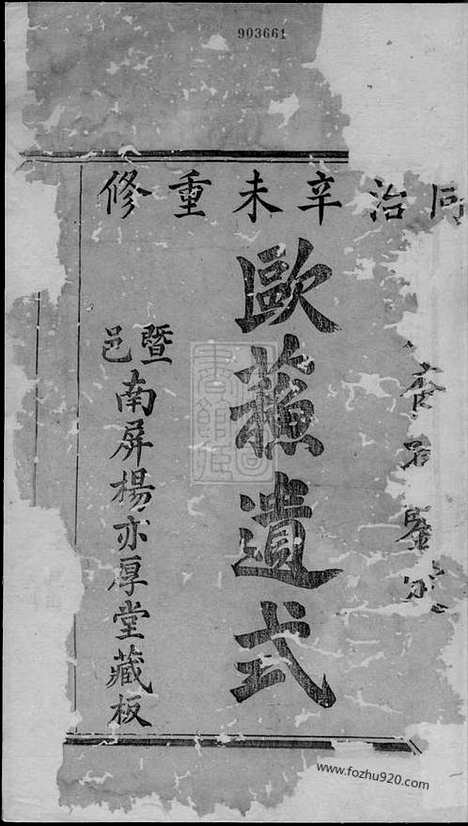 903661
同治辛未重修
鑒定
歐蘓遺式
暨邑南屏楊亦厚堂藏板
www.fozhu920.com